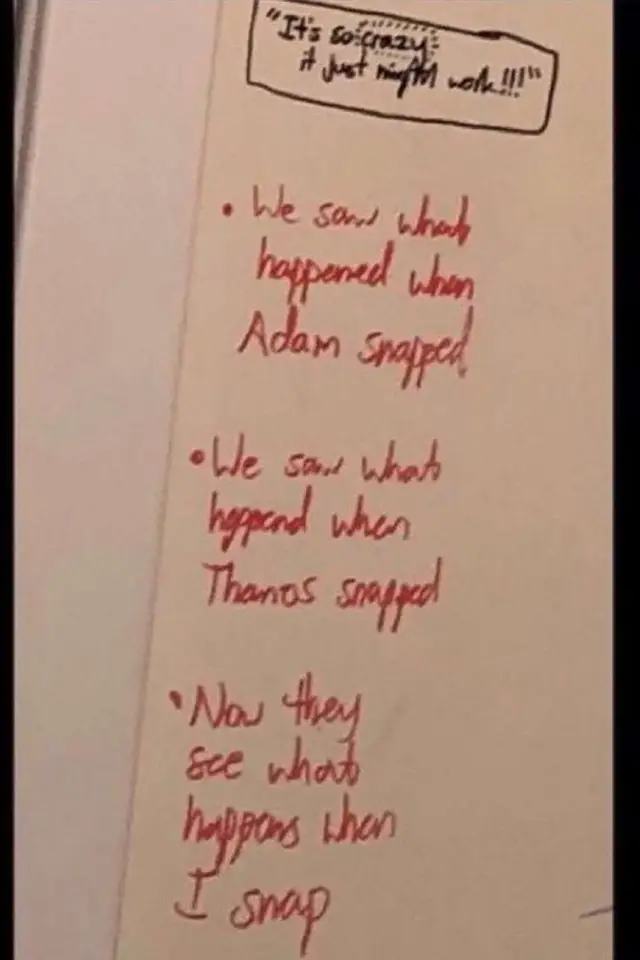 "It's so crazy
it just might work!!!"
• We saw what
happened when
Adam snapped
• We saw what
happend when
Thanos snapped
• Now they
see what
happens when
I snap